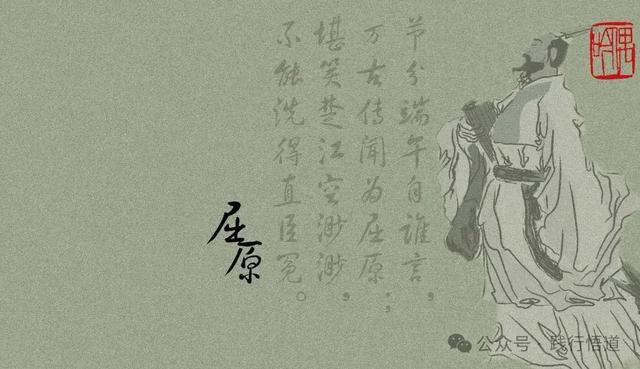 偶吟
节分端午自谁言，
万古传闻为屈原；
堪笑楚江空渺渺，
不能洗得直臣冤。
屈原
公众号 · 践行悟道